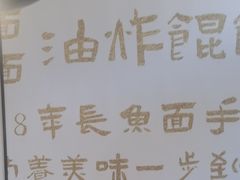 面
面
油炸餛
8年長魚面手
養美味一步